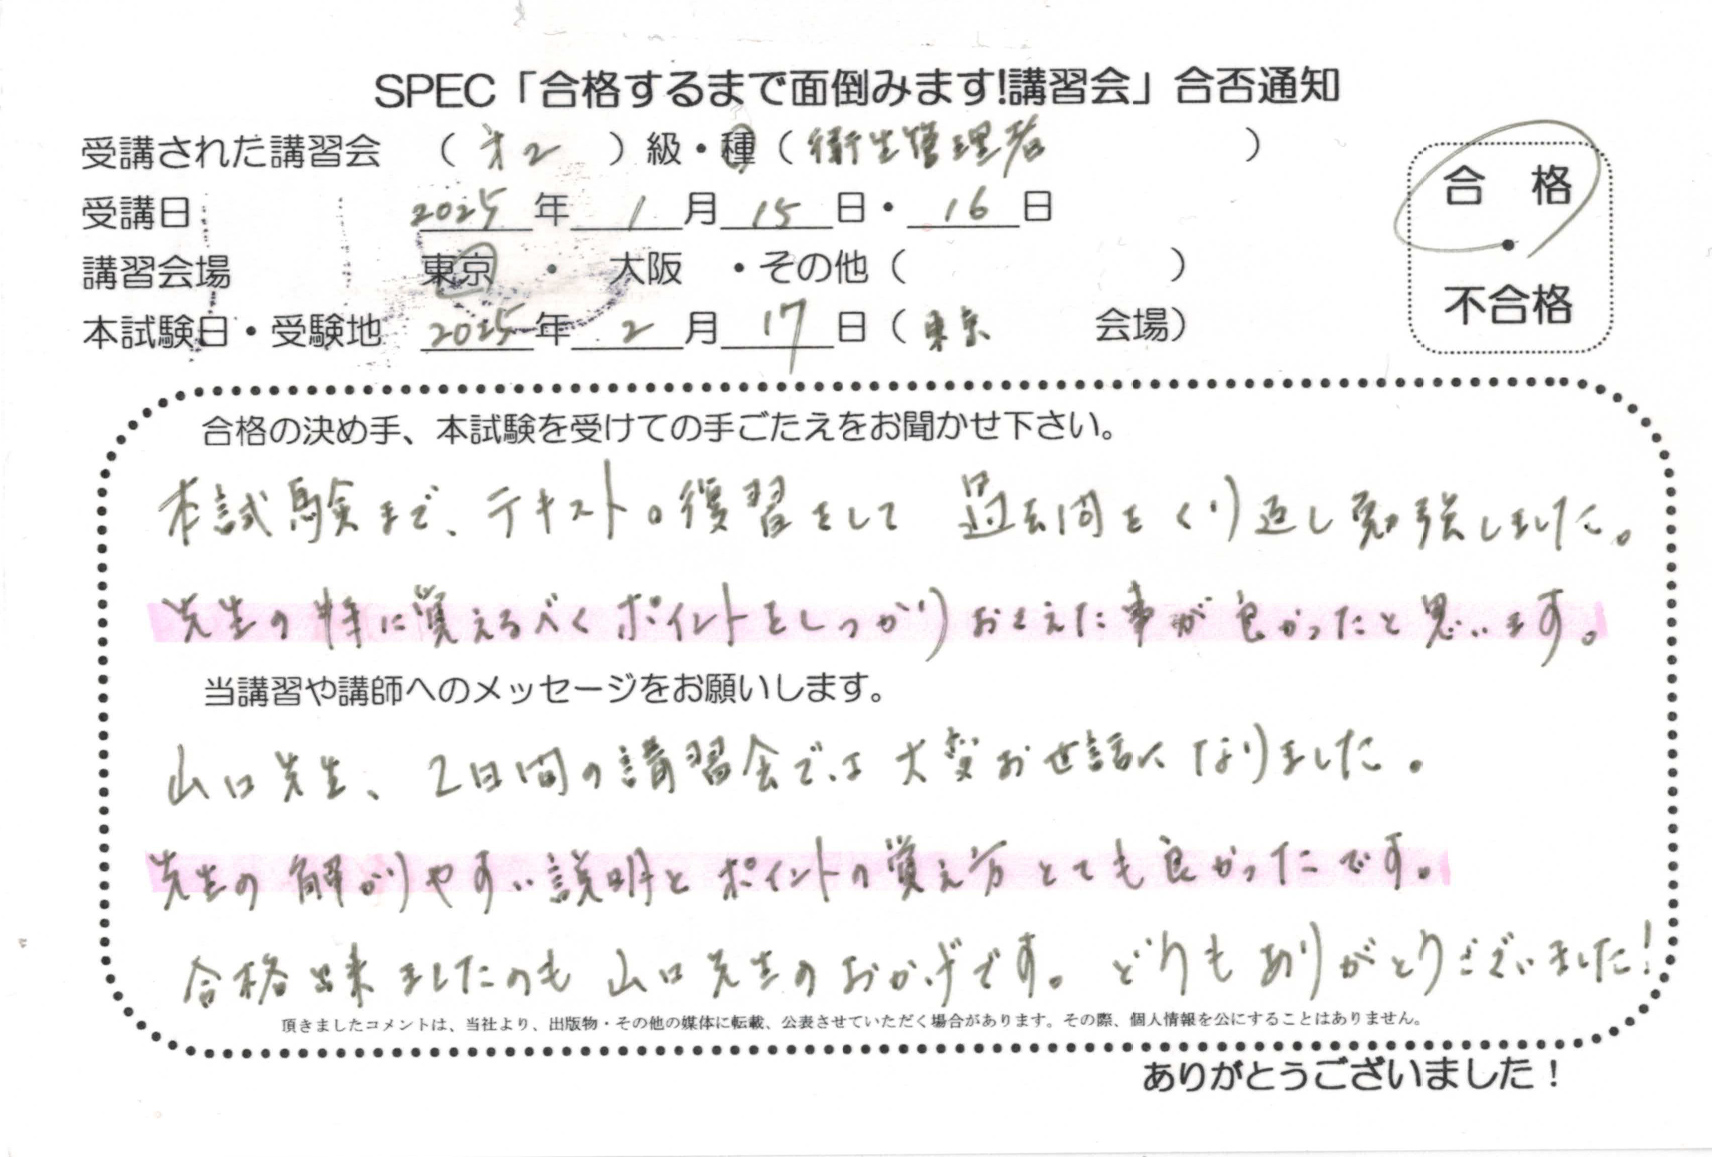 SPEC「合格するまで面倒みます!講習会」合否通知
受講された講習会 （ 才2 ）級・種（ 衛生管理者 ）
受講日 2025年 1月 15日・ 16日
講習会場 東京 ・ 大阪 ・その他（ ）
本試験日・受験地 2025年 2月 17日（ 東京 会場）
合 格
・
不合格
合格の決め手、本試験を受けての手ごたえをお聞かせ下さい。
本試験まで、テキストの復習をして 過去問をくり返し勉強しました。
先生の特に覚えるべくポイントをしっかりおさえた事が良かったと思います。
当講習や講師へのメッセージをお願いします。
山口先生、2日間の講習会では大変お世話になりました。
先生の解かりやすい説明とポイントの覚え方とても良かったです。
合格出来ましたのも山口先生のおかげです。どうもありがとうございました!
頂きましたコメントは、当社より、出版物・その他の媒体に転載、公表させていただく場合があります。その際、個人情報を公にすることはありません。
ありがとうございました！